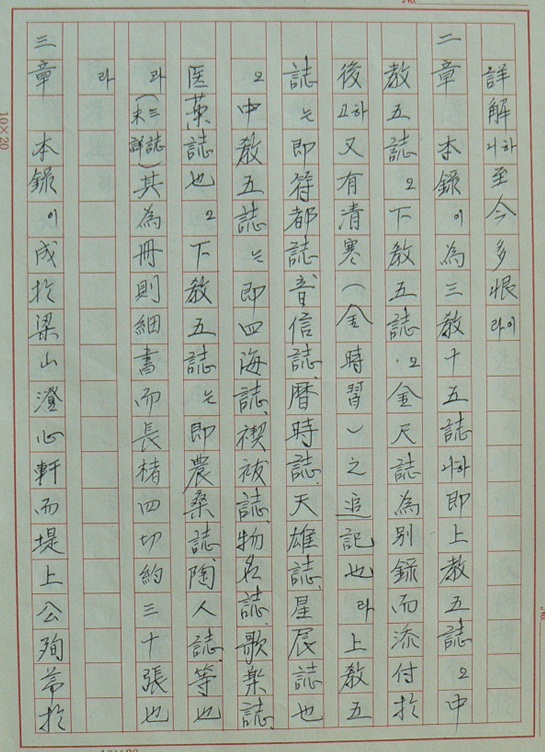 詳解하니至今多恨이라
二章 本錄이為三教十五誌하나即上教五誌오中
教五誌오下教五誌오金尺誌為別錄而添付於
後하고又有清寒(金時習)之追記也라上教五
誌는即符都誌、音信誌、暦時誌、天雄誌、星辰誌也
오中教五誌는即四海誌、禊祓誌、物名誌、歌楽誌、
医薬誌也오下教五誌는即農桑誌、陶人誌、等也
라(三誌未詳)其為冊則細書而長楮四切約三十張也
라
三章 本錄이成於梁山澄心軒而堤上公殉節於
10×20